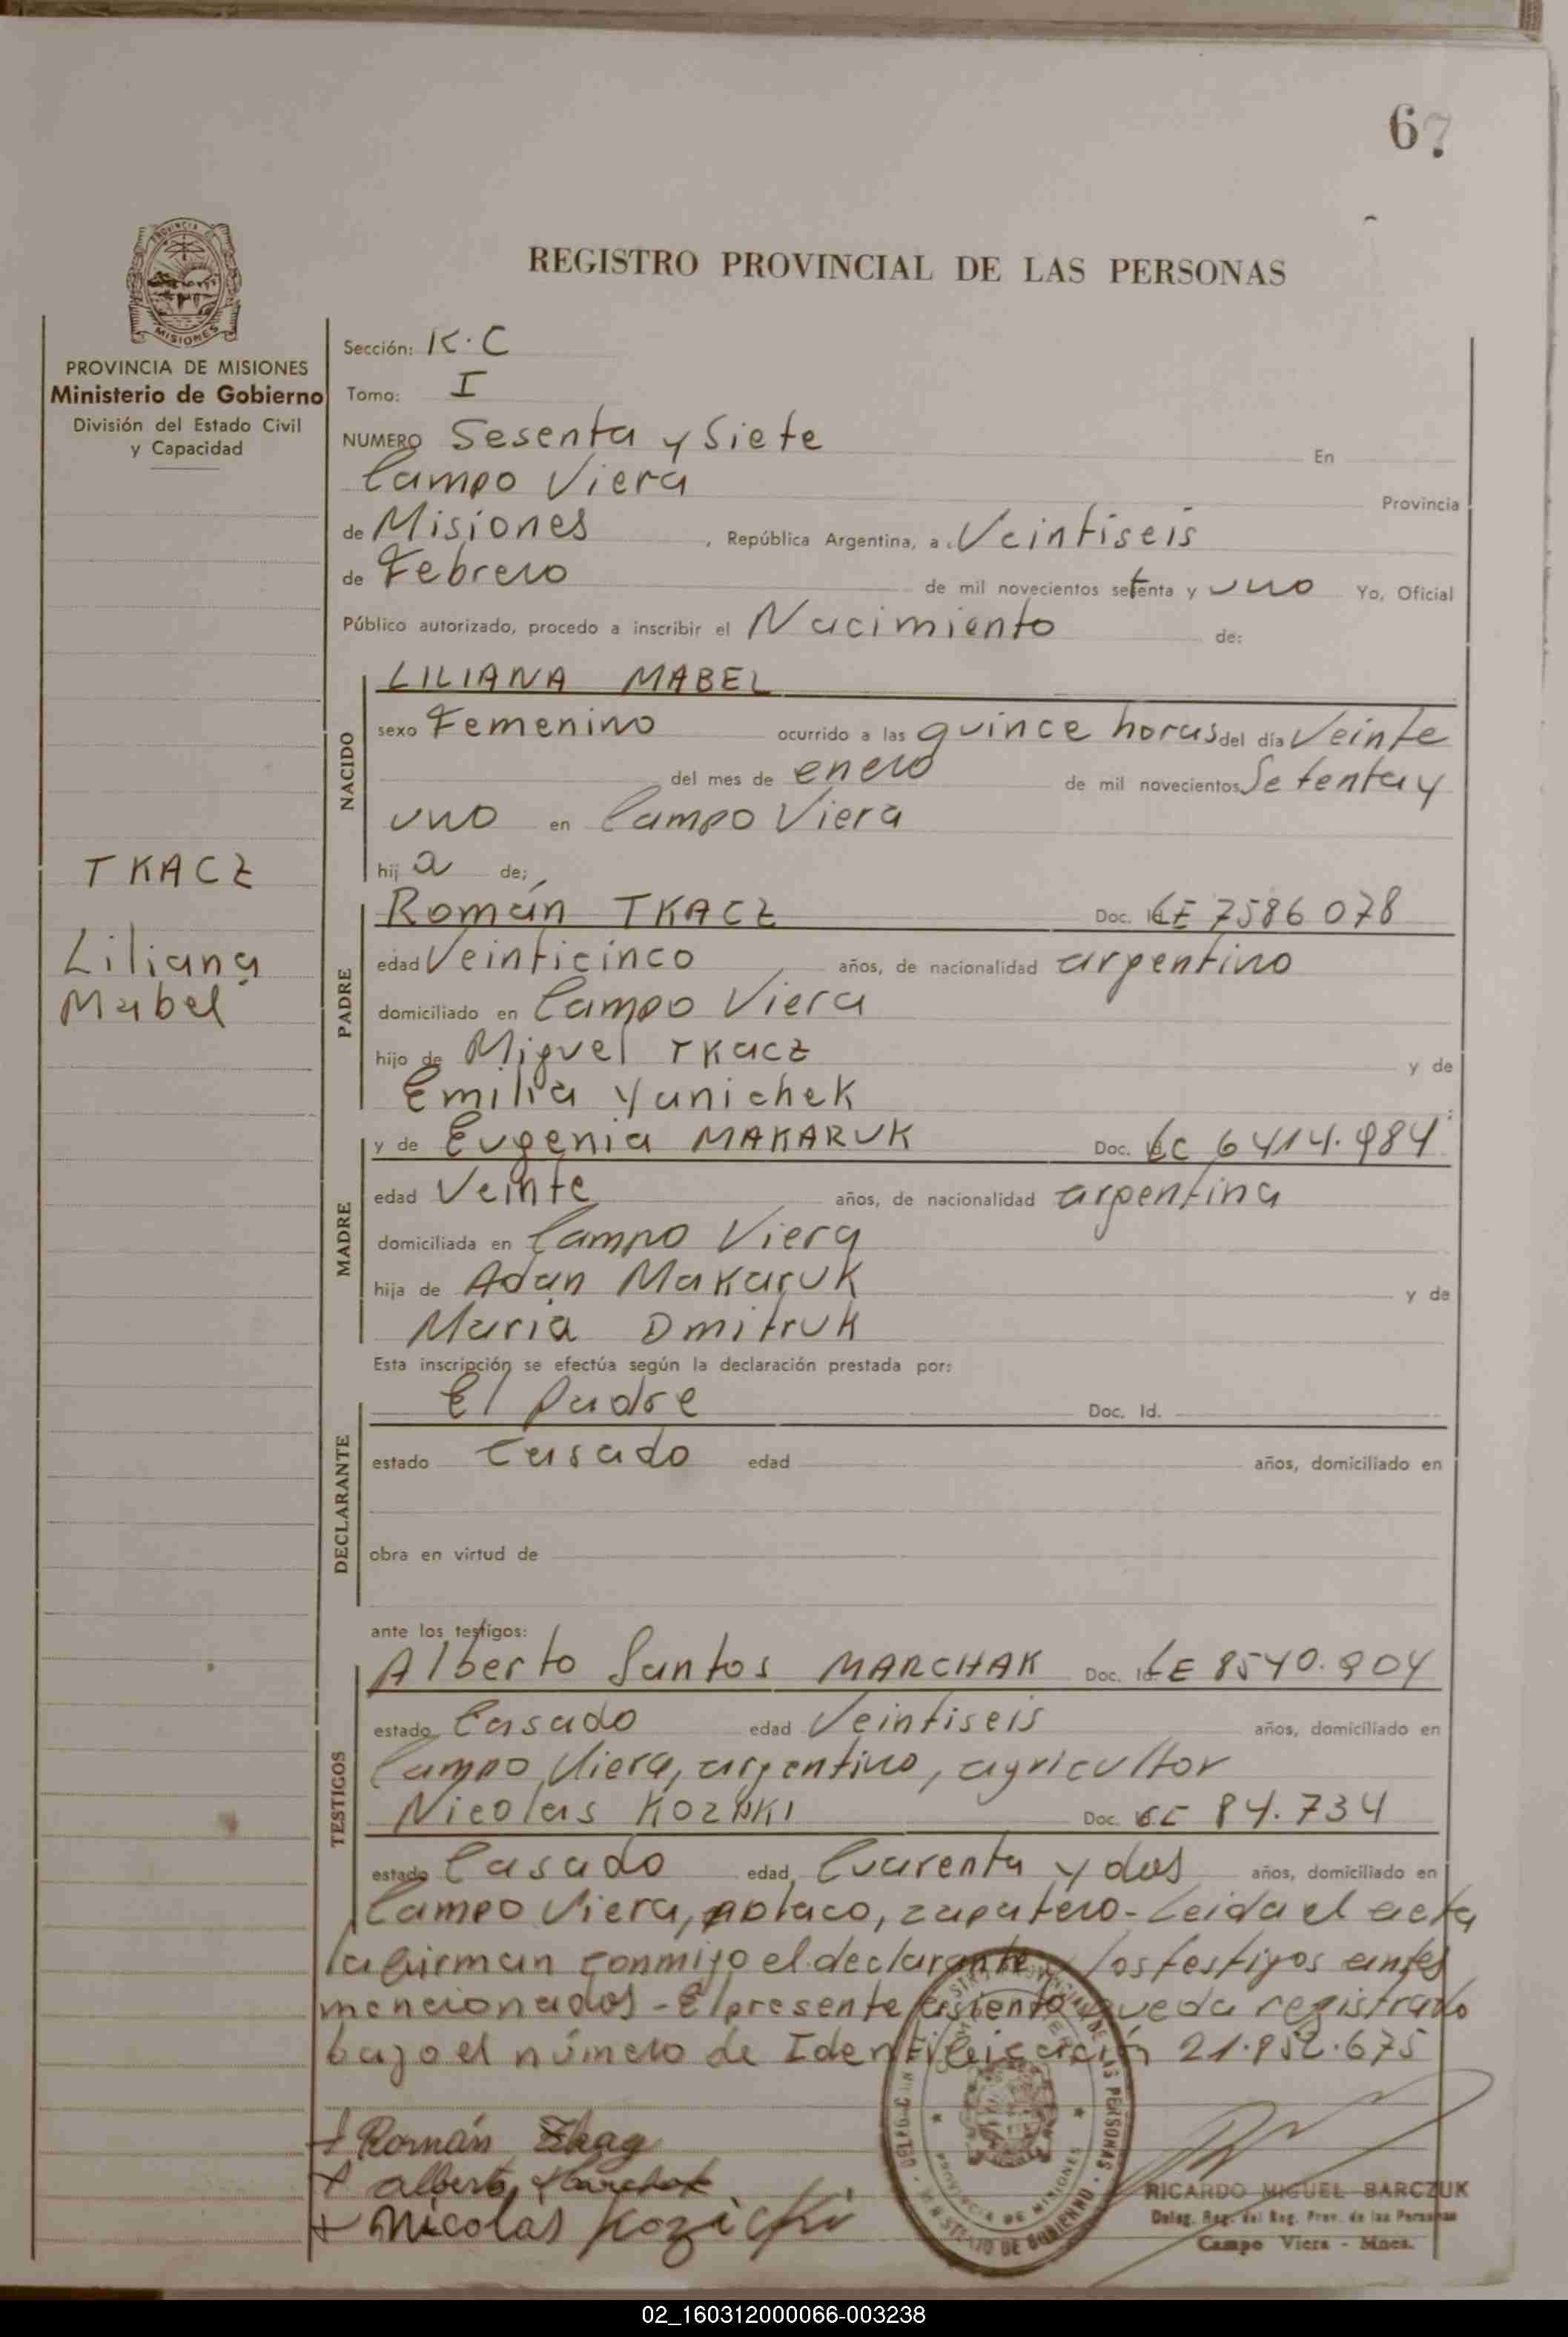 67
REGISTRO PROVINCIAL DE LAS PERSONAS
MISIONES
PROVINCIA DE MISIONES
Ministerio de Gobierno
División del Estado Civil
y Capacidad
TKACZ
Liliana
Mabel
Sección: K.C
Tomo: I
NUMERO Sesenta y Siete En
Campo Viera Provincia
de Misiones , República Argentina, a Veintiseis
de Febrero de mil novecientos setenta y uno Yo, Oficial
Público autorizado, procedo a inscribir el Nacimiento de:
NACIDO
LILIANA MABEL
sexo Femenino ocurrido a las quince horas del día Veinte
del mes de enero de mil novecientos Setenta y
uno en Campo Viera
hij a de;
PADRE
Román TKACZ Doc. LE 7586078
edad Veinticinco años, de nacionalidad argentino
domiciliado en Campo Viera
hijo de Miguel Tkacz y de
Emilia Yanichek
MADRE
y de Eugenia MAKARUK Doc. LC 6414.984
edad Veinte años, de nacionalidad argentina
domiciliada en Campo Viera
hija de Adán Makaruk y de
María Dmitruk
Esta inscripción se efectúa según la declaración prestada por:
DECLARANTE
El Padre Doc. Id.
estado Casado edad años, domiciliado en
obra en virtud de
ante los testigos:
TESTIGOS
Alberto Santos MARCHAK Doc. Id. LE 8540.904
estado Casado edad Veintiseis años, domiciliado en
Campo Viera, argentino, agricultor
Nicolas KOZAKI Doc. 84.734
estado Casado edad Cuarenta y dos años, domiciliado en
Campo Viera, polaco, zapatero - Leida el acta
la firman conmigo el declarante y los testigos antes
mencionados - El presente asiento queda registrado
bajo el número de Identificación 21.852.675
Román
Alberto Marchak
Nicolas Kozicki
PROVINCIA DE MISIONES
MINISTERIO DE GOBIERNO
RICARDO MIGUEL BARCZUK
Deleg. Reg. del Reg. Prov. de las Personas
Campo Viera - Mnes.
02_160312000066-003238